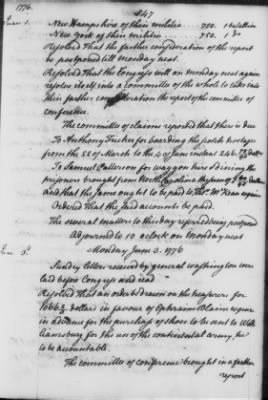 1776.
247
June 1.
New Hampshire of their militia 750. 1 battalion
New York of their militia 750. 1 do
Resolved That the farther consideration of the report
be postponed till Monday next.
Resolved That the Congress will on monday next again
resolve itself into a committee of the whole to take into
their farther consideration the report of the committee of
conference.
The committee of claims reported that there is due
To Anthony Fricker for boarding the
from the 22 of March to the 4 of June instant 246.
To Samuel Patterson for waggon hire & dining the
prisoners brought from North Carolina
and that the same ought to be paid to Thos. McKean esquire
Ordered that the said accounts be paid.
The several matters to this day referred being postponed
Adjourned to 10 oclock on monday next
June 3d.
Monday June 3. 1776
Sundry letters received by general washington were
laid before Congress and read
Resolved That an order be drawn on the treasurer for
1666 2/3 dollars in favour of Ephraim Blaine esquire
in advance for the purchase of shoes to be sent to Wil
liamsburg for the use of the continental army, he
to be accountable.
The committee of conference brought in a farther
report